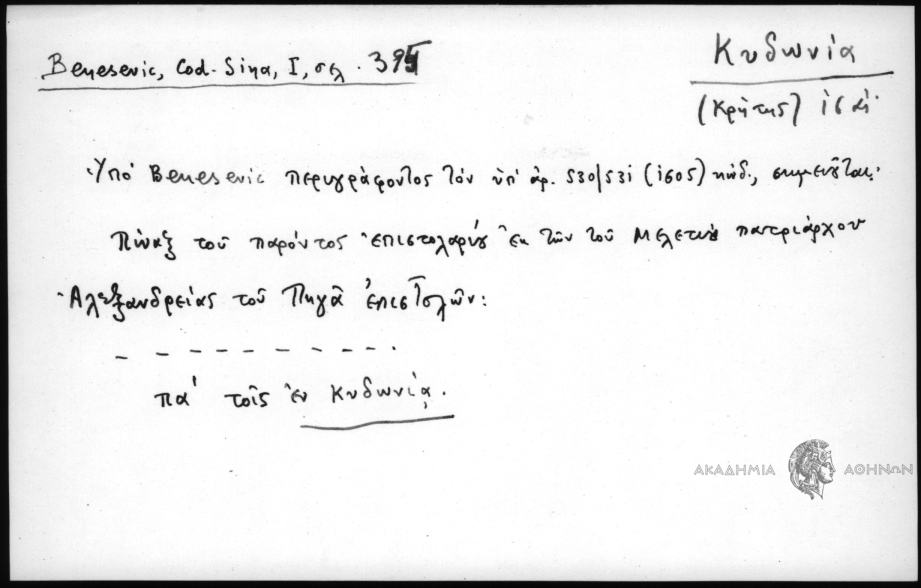 Κυδωνία
Benesevic, Cod. Sina, I, σελ. 395
(Κρήτης) ις αἰ.
Ὑπό Benesevic περιγράφοντος τόν ὑπ' ἀρ. 530/531 (1605) κώδ., σημειοῦται:
Πίναξ τοῦ παρόντος ἐπιστολαρίου ἐκ τῶν τοῦ Μελετίου πατριάρχου
Ἀλεξανδρείας τοῦ Πηγᾶ ἐπιστολῶν:
- - - - - - - - - .
πα' τοῖς ἐν Κυδωνίᾳ.
ΑΚΑΔΗΜΙΑ ΑΘΗΝΩΝ